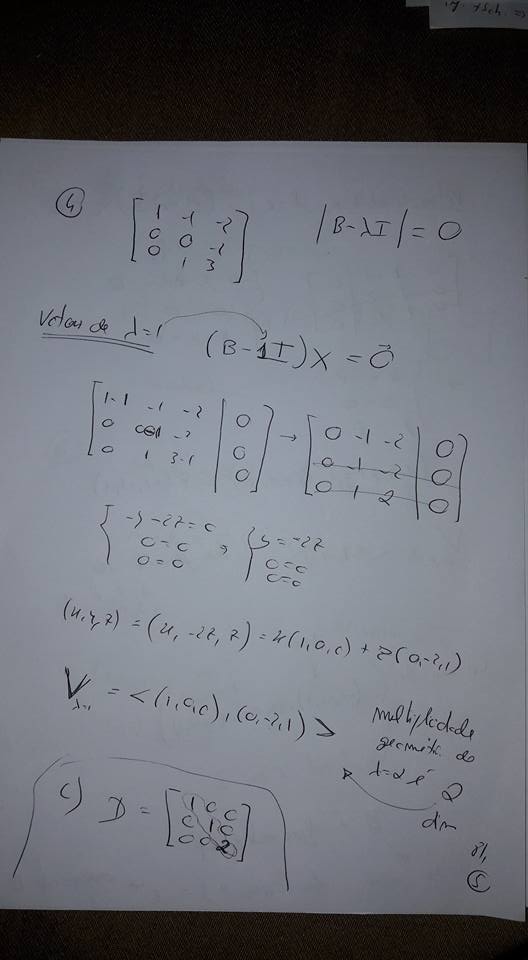 4
[1 -1 -2
0 0 -1
0 1 3] |B-λI| = 0
de λ=1 (B-1I)X = 0⃗
[1-1 -1 -2 | 0
0 0-1 -2 | 0
0 1 3-1 | 0] → [0 -1 -2 | 0
0 -1 -2 | 0
0 1 2 | 0]
{-y-2z=0
0=0
0=0 , {y=-2z
0=0
0=0
(x,y,z) = (x, -2z, z) = x(1,0,0) + z(0,-2,1)
V λ=1 = <(1,0,0), (0,-2,1)>
multiplicidade
geométri. do
λ=2 é 2
dim
c) D = [1 0 0
0 1 0
0 0 2]
5